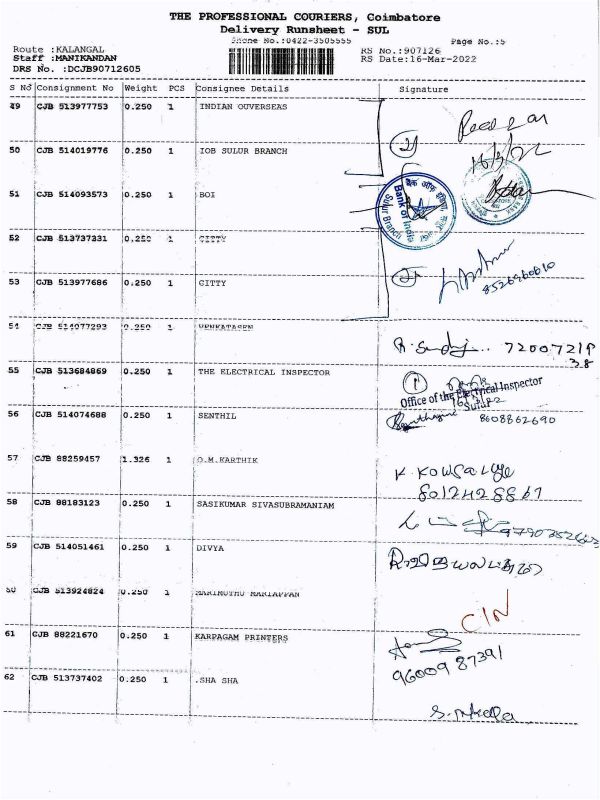 THE PROFESSIONAL COURIERS, Coimbatore
Delivery Runsheet - SUL
Phone No.:0422-3505555
Page No.:5
Route :KALANGAL
RS No.:907126
Staff :MANIKANDAN
RS Date:16-Mar-2022
DRS No. :DCJB90712605
S No Consignment No Weight PCS Consignee Details Signature
49 CJB 513977753 0.250 1 INDIAN OUVERSEAS
50 CJB 514019776 0.250 1 IOB SULUR BRANCH
16/3/22
51 CJB 514093573 0.250 1 BOI
बैंक ऑफ इंडिया
Bank of India
Sulur Branch
52 CJB 513737331 0.250 1 CITTY
53 CJB 513977686 0.250 1 CITTY
8526960610
54 CJB 514077293 0.250 1 VENKATASEN
72007219
38
55 CJB 513684869 0.250 1 THE ELECTRICAL INSPECTOR
1
Office of the Electrical Inspector
Sulur
56 CJB 514074688 0.250 1 SENTHIL
8608862690
57 CJB 88259457 1.326 1 O.M.KARTHIK
K. KOWSALYA
8012428867
58 CJB 88183123 0.250 1 SASIKUMAR SIVASUBRAMANIAM
59 CJB 514051461 0.250 1 DIVYA
60 CJB 513924824 0.250 1 MARIMUTHU MARIAPPAN
C/N
61 CJB 88221670 0.250 1 KARPAGAM PRINTERS
9600987391
62 CJB 513737402 0.250 1 .SHA SHA